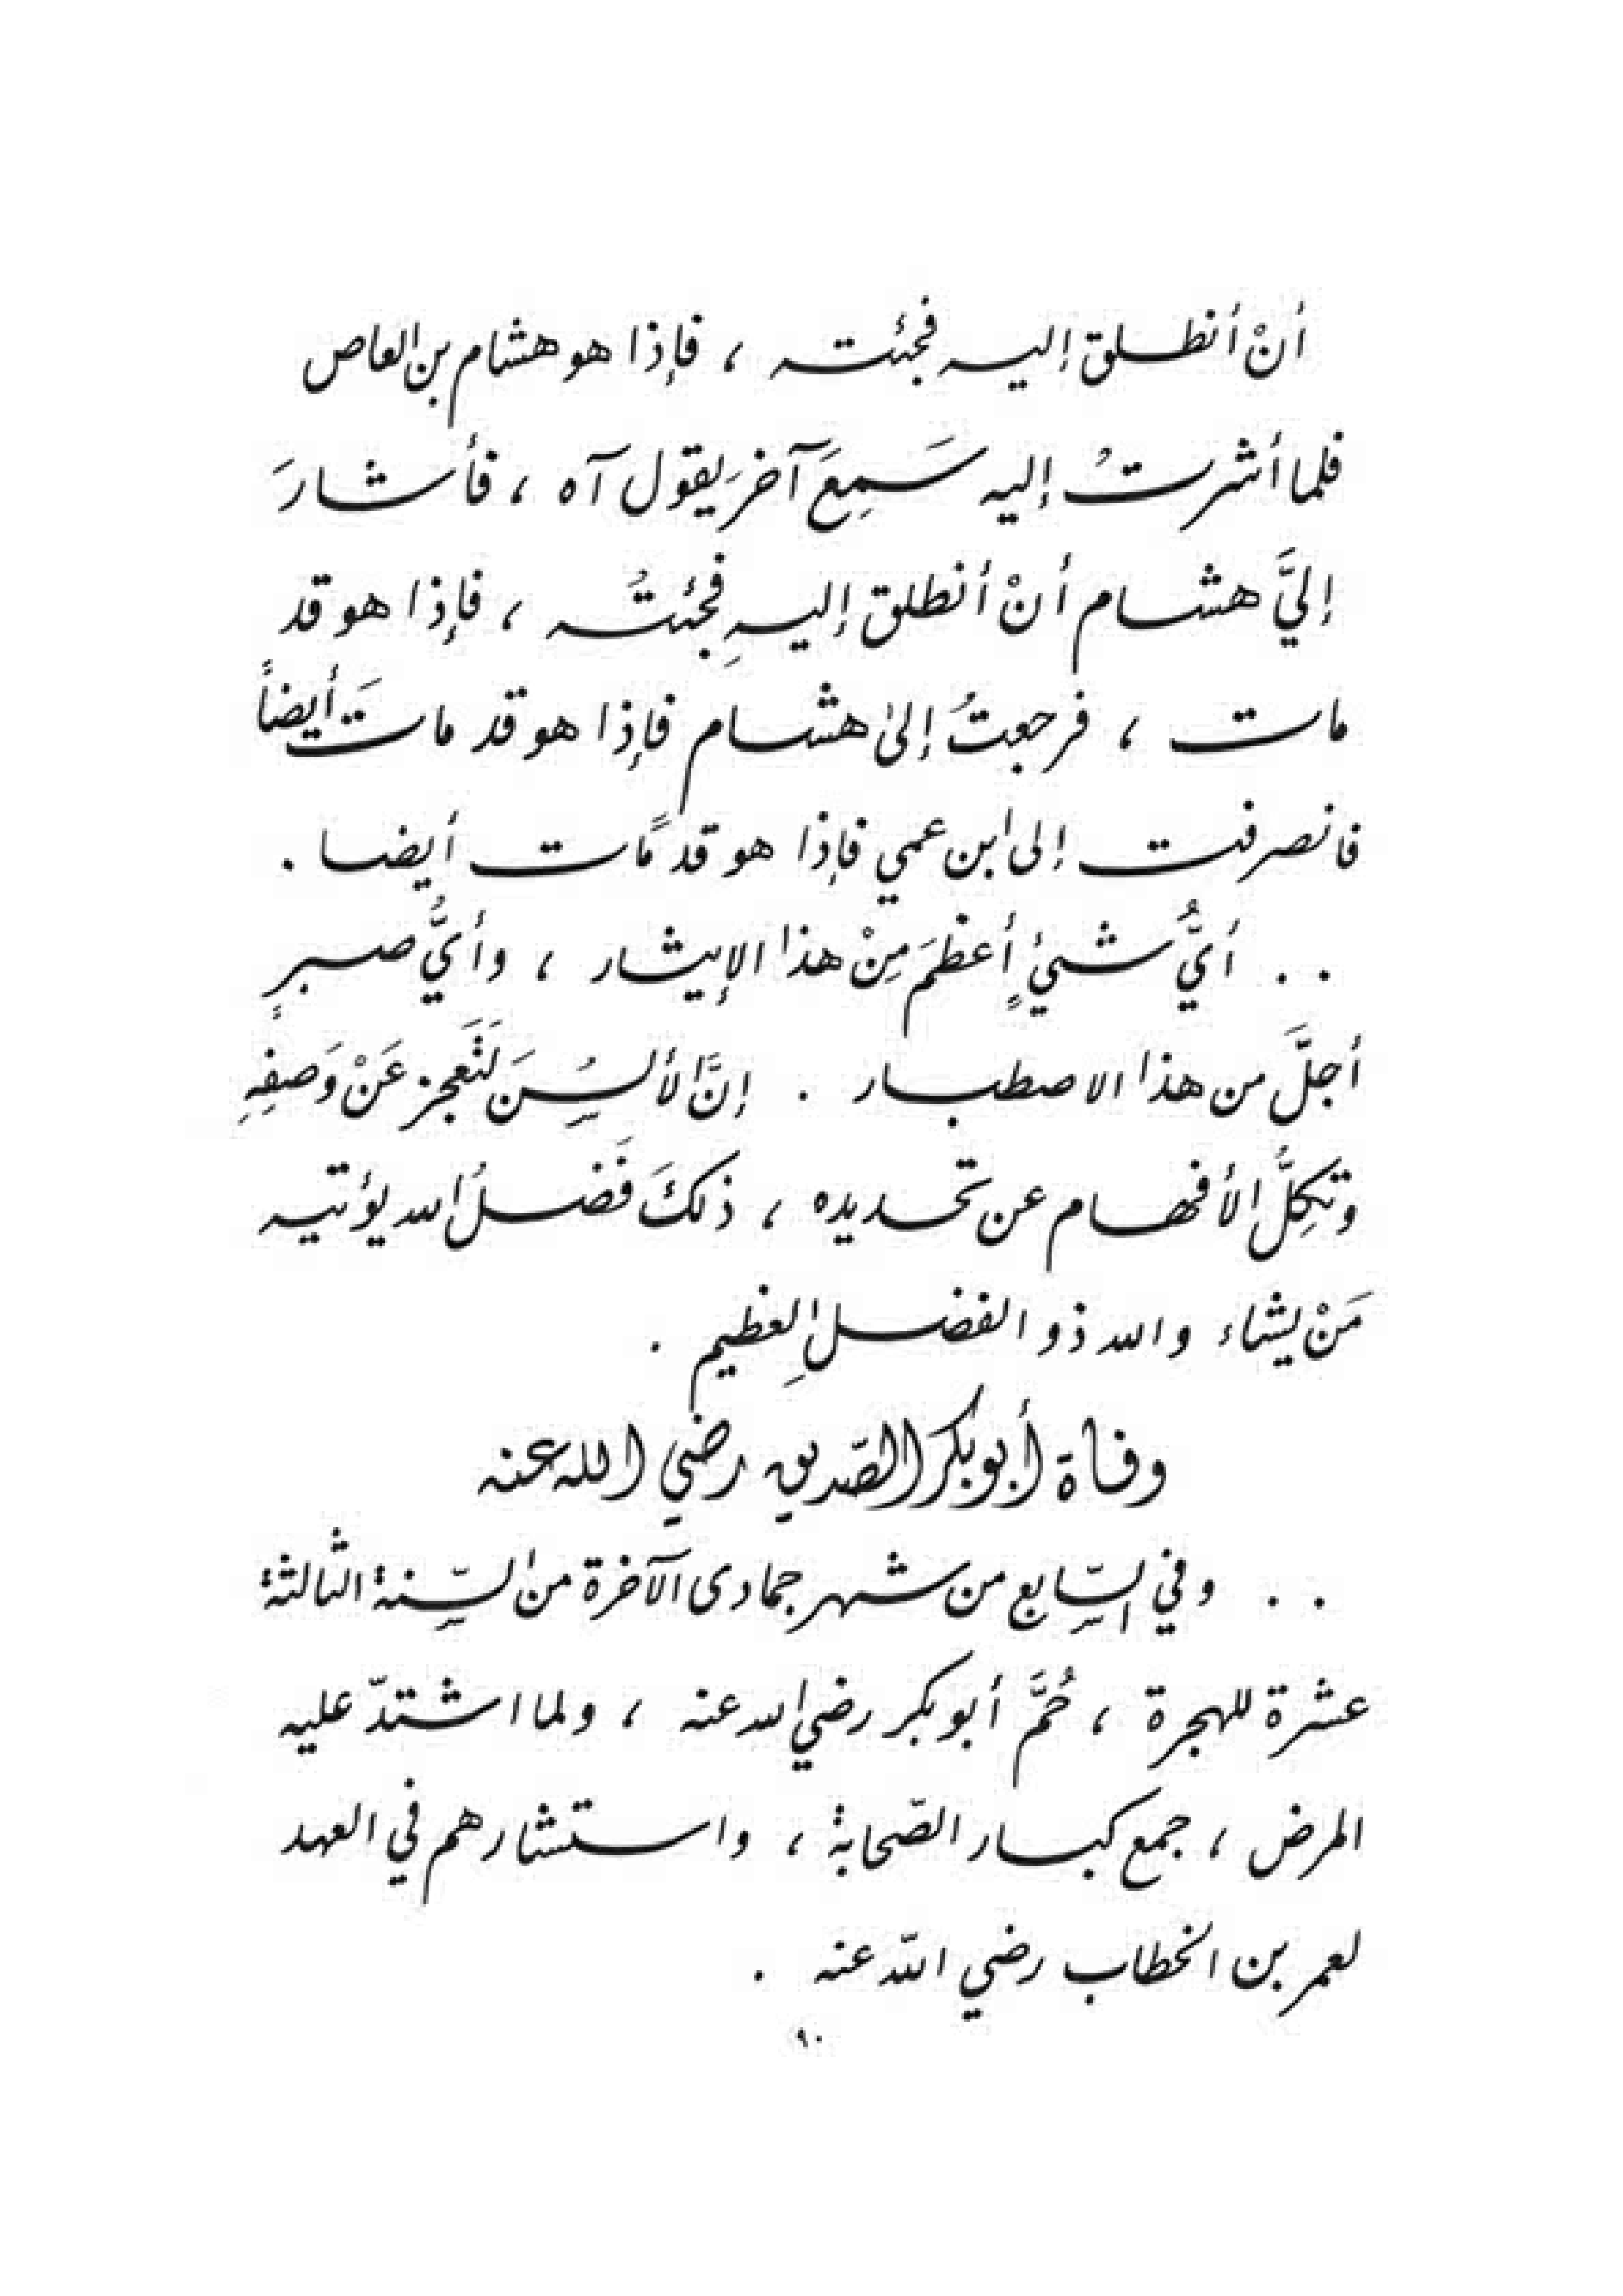 أنْ أنطلق إليه فجئته ، فإذا هو هشام بن العاص
فلما أشرتُ إليه سَمِعَ آخرَ يقول آه ، فأشارَ
إليَّ هشام أنْ أنطلق إليهِ فجئتُه ، فإذا هو قد
مات ، فرجعتُ إلى هشام فإذا هو قد ماتَ أيضاً
فانصرفت إلى ابن عمي فإذا هو قد مات أيضا .
. . أيُّ شيءٍ أعظمَ مِنْ هذا الإيثار ، وأيُّ صبرٍ
أجلَّ من هذا الاصطبار . إنَّ الألسُنَ لَتَعجز عَنْ وَصفِهِ
وتكِلُّ الأفهام عن تحديده ، ذلكَ فَضلُ الله يؤتيه
مَنْ يشاء والله ذو الفضلِ العظيم .
وفاة أبو بكر الصّديق رضي الله عنه
. . وفي السّابع من شهر جمادى الآخرة من السّنة الثالثة
عشرة للهجرة ، حُمَّ أبو بكر رضي الله عنه ، ولما اشتدّ عليه
المرض ، جمع كبار الصّحابة ، واستشارهم في العهد
لعمر بن الخطاب رضي الله عنه .
٩٠